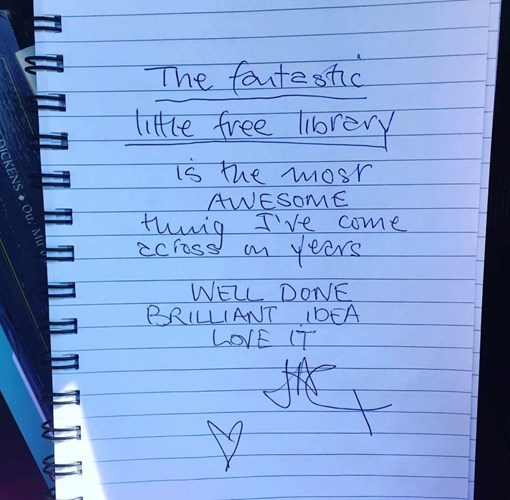 The fantastic
little free library
is the most
AWESOME
thing I've come
across in years
WELL DONE
BRILLIANT IDEA
LOVE IT
DICKENS • Our Mu